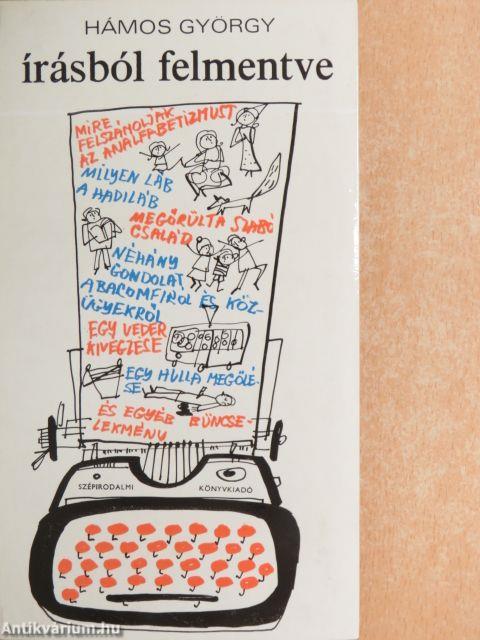 HÁMOS GYÖRGY
írásból felmentve
MIRE
FELSZÁMOLJÁK
AZ ANALFABÉTIZMUST
MILYEN LÁB
A HADILÁB
MEGŐRÜLT A SZABÓ
CSALÁD
NÉHÁNY
GONDOLAT
A BAROMFIRÓL ÉS KÖZ-
ÜGYEKRŐL
EGY VEDER
KIVÉGZÉSE
EGY HULLA MEGÖLÉ-
SE
ÉS EGYÉB BŰNCSE-
LEKMÉNY
SZÉPIRODALMI KÖNYVKIADÓ
Antikvárium.hu